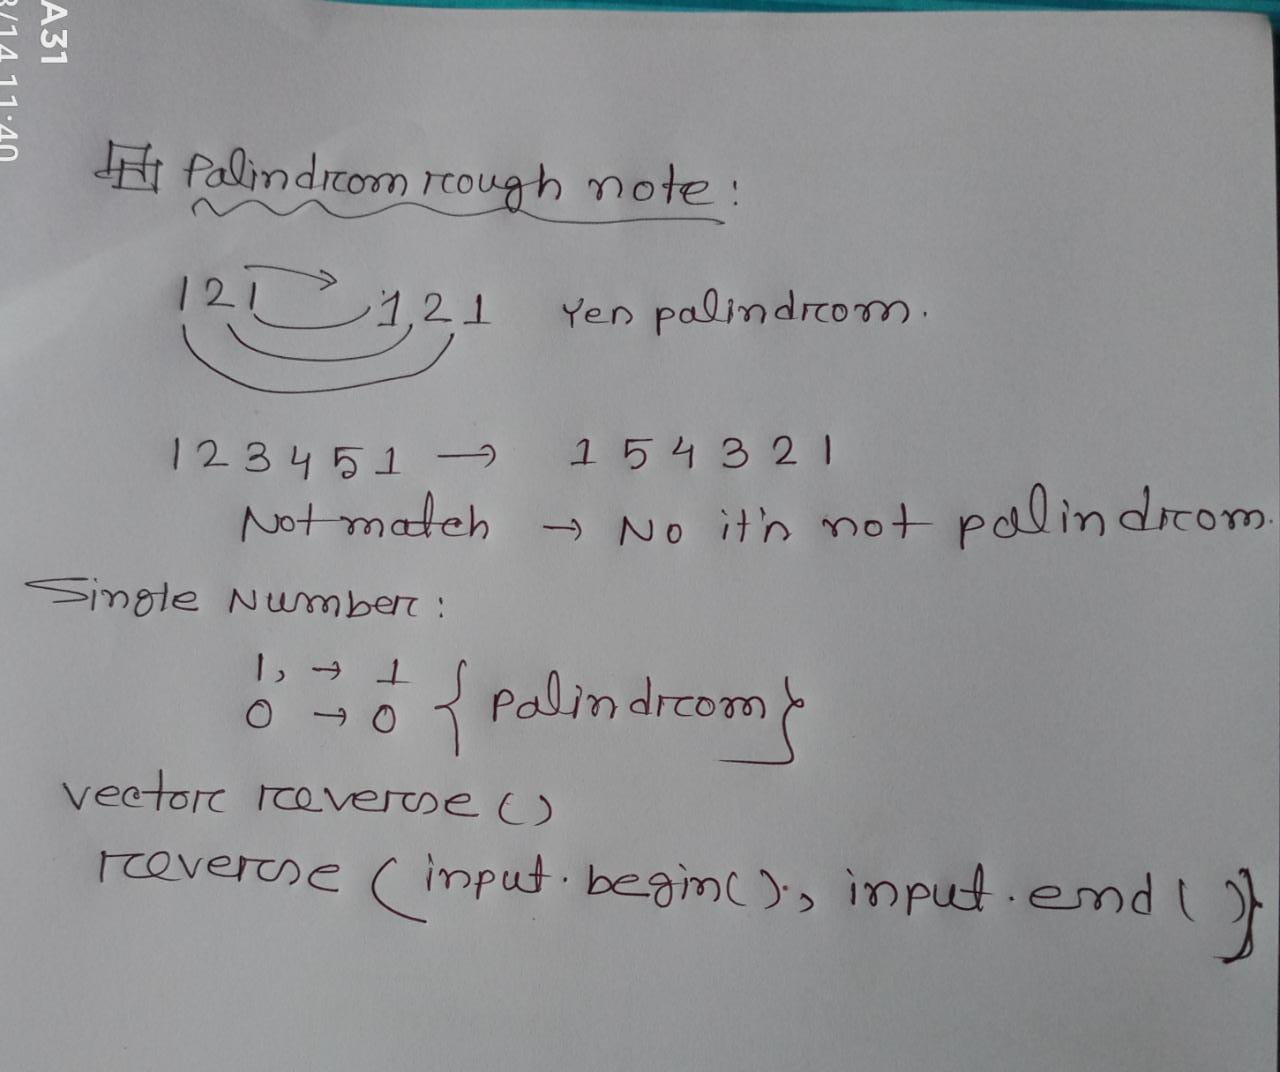 Palindrom rough note:
121 → 121 Yes palindrom.
123451 → 154321
Not match → No it's not palindrom.
Single Number:
1, → 1
0 → 0 { palindrom }
vector reverse()
reverse (input.begin(), input.end())
A31
3/14 11:40